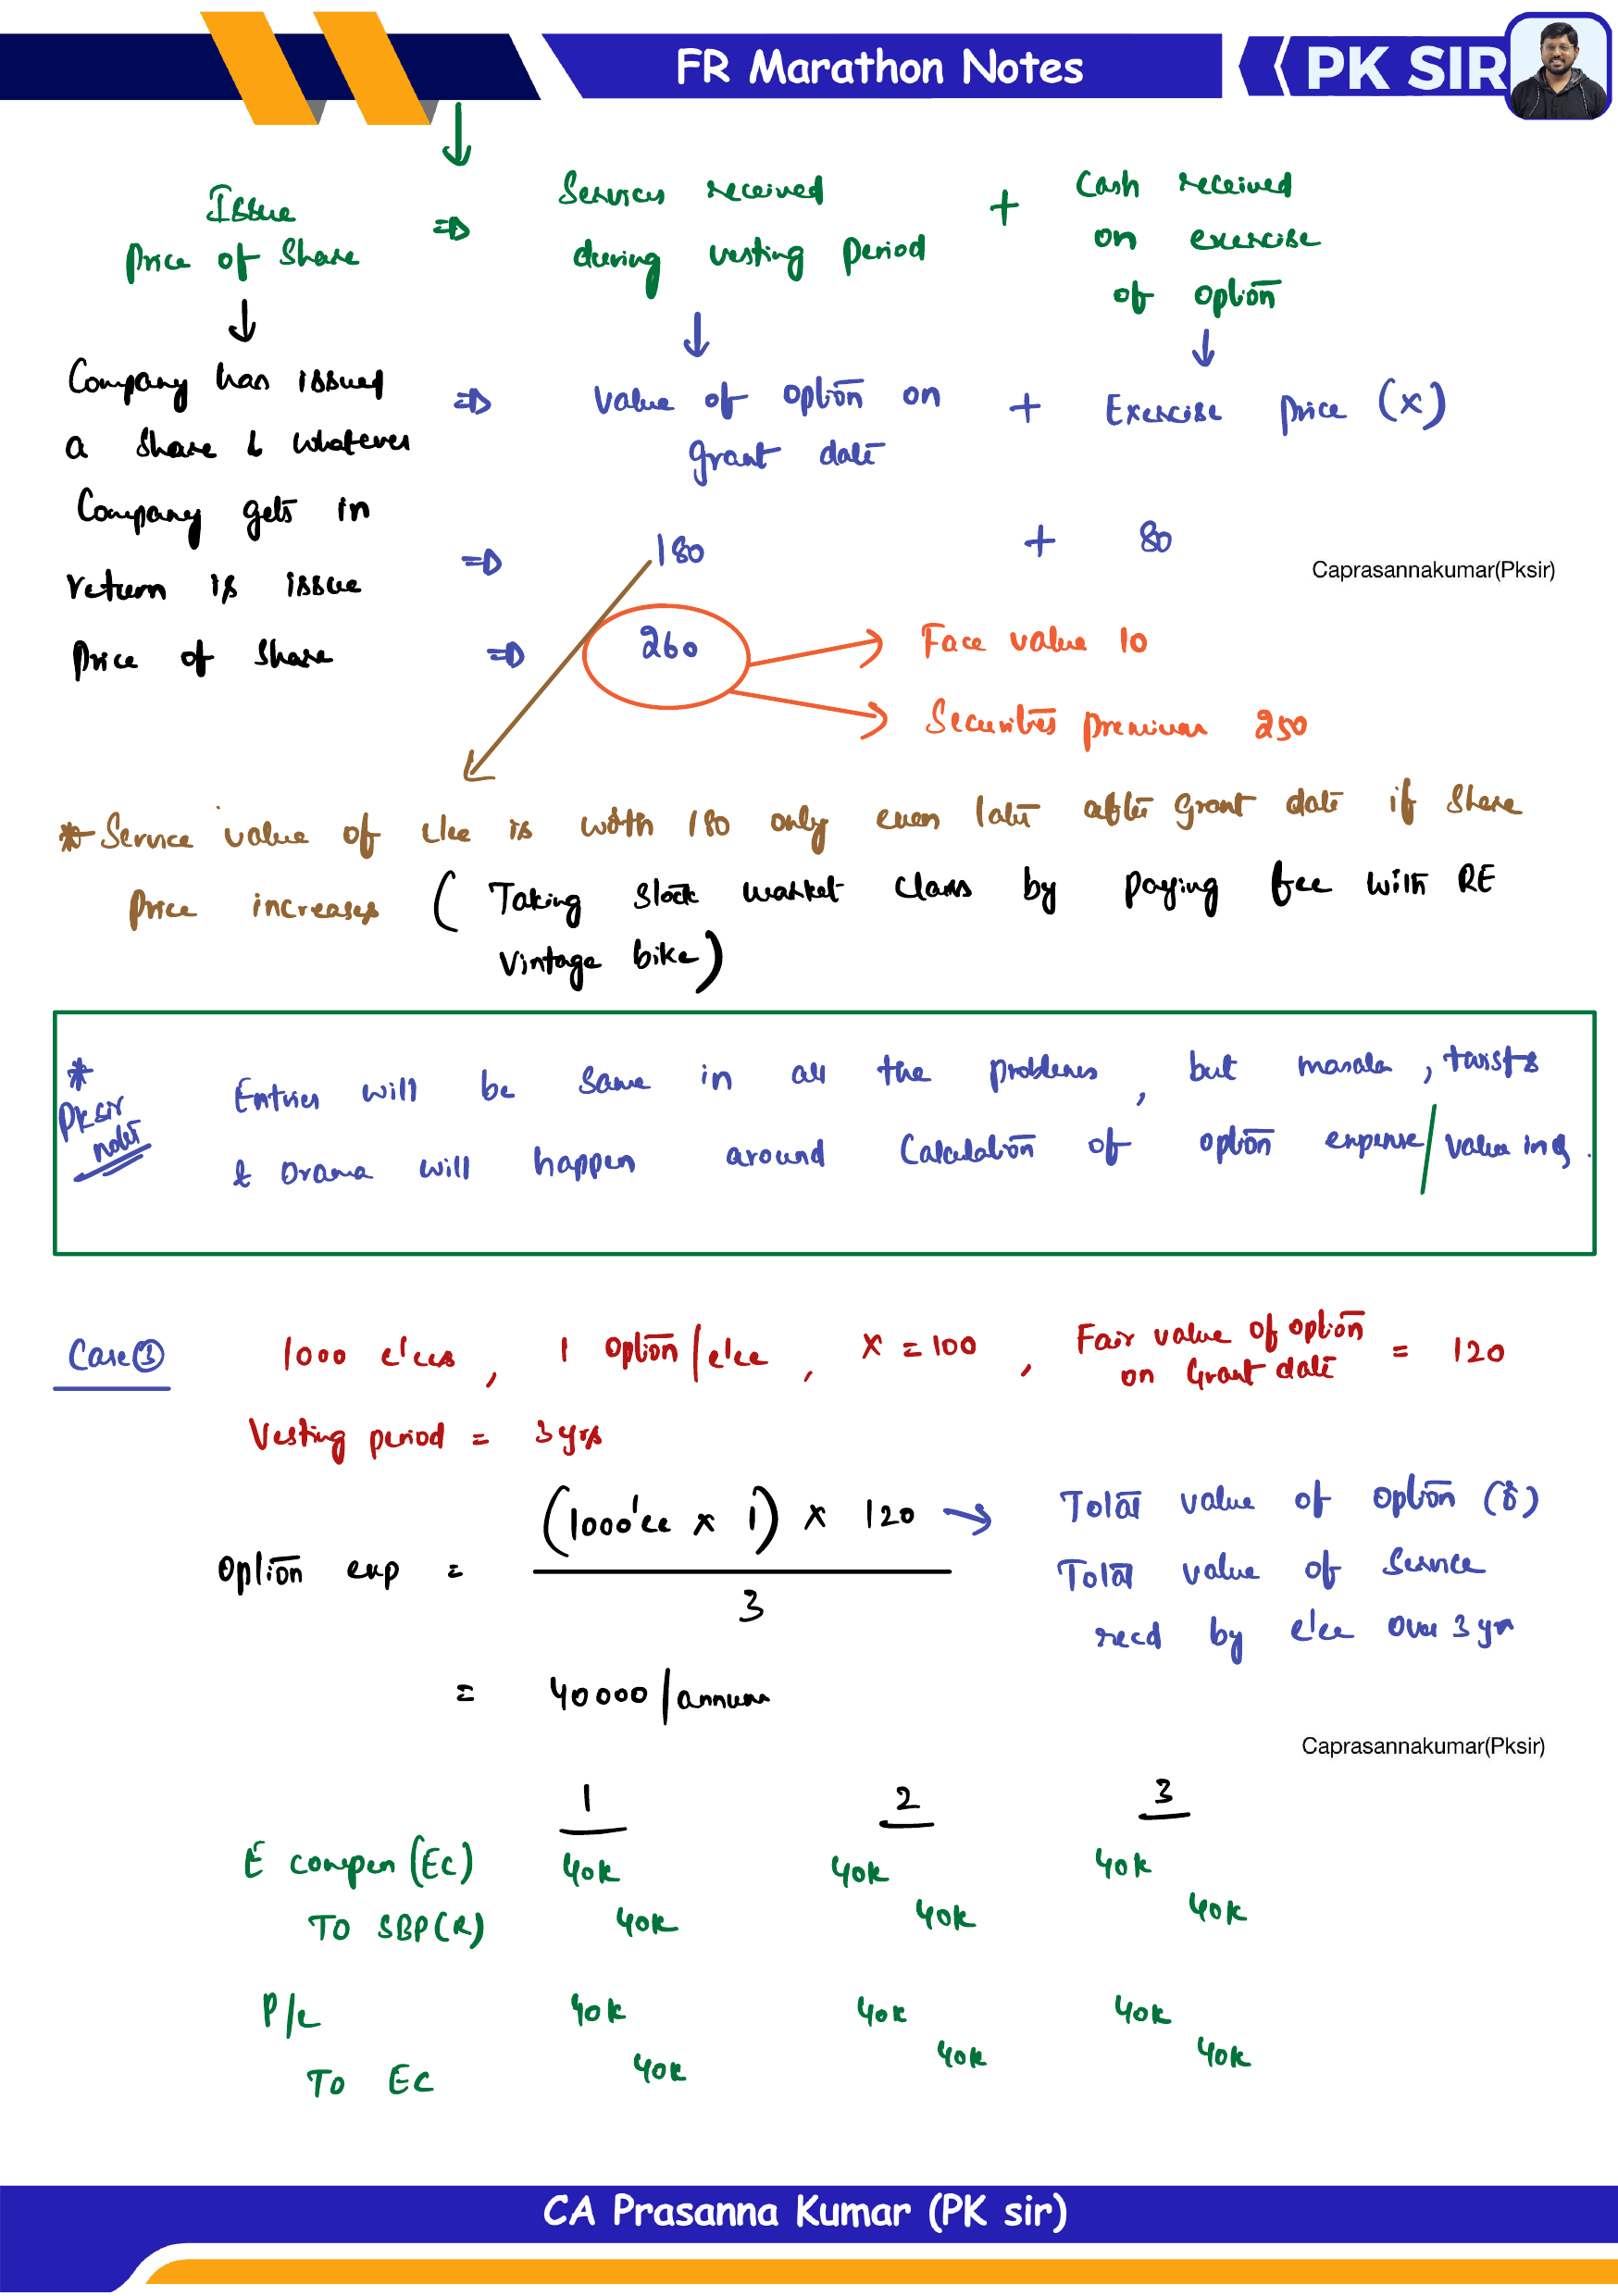 FR Marathon Notes
PK SIR
Issue Price of Share ⇒ Services received during vesting period + Cash received on exercise of option
Company has issued a share & whatever Company gets in return is issue Price of Share
⇒ Value of option on grant date + Exercise price (x)
⇒ 180 + 80
Caprasannakumar(Pksir)
⇒ 260
Face value 10
Securities premium 250
* Service value of e'ee is worth 180 only even late after grant date if share
Price increases ( Taking Stock market class by paying fee with RE
Vintage bike)
* Pk sir note
Entries will be same in all the problems, but masala, twists
& Drama will happen around Calculation of option expense / value in Q.
Case ③ 1000 e'ees, 1 option/e'ee, X = 100, Fair value of option on Grant date = 120
Vesting period = 3 yrs
Option exp = (1000'ee x 1) x 120 / 3
→ Total value of option (₹)
Total value of Service
recd by e'ee over 3 yrs
= 40000/annum
Caprasannakumar(Pksir)
1 2 3
E compen (EC) 40k 40k 40k
TO SBP(R) 40k 40k 40k
P/L 40k 40k 40k
TO EC 40k 40k 40k
CA Prasanna Kumar (PK sir)